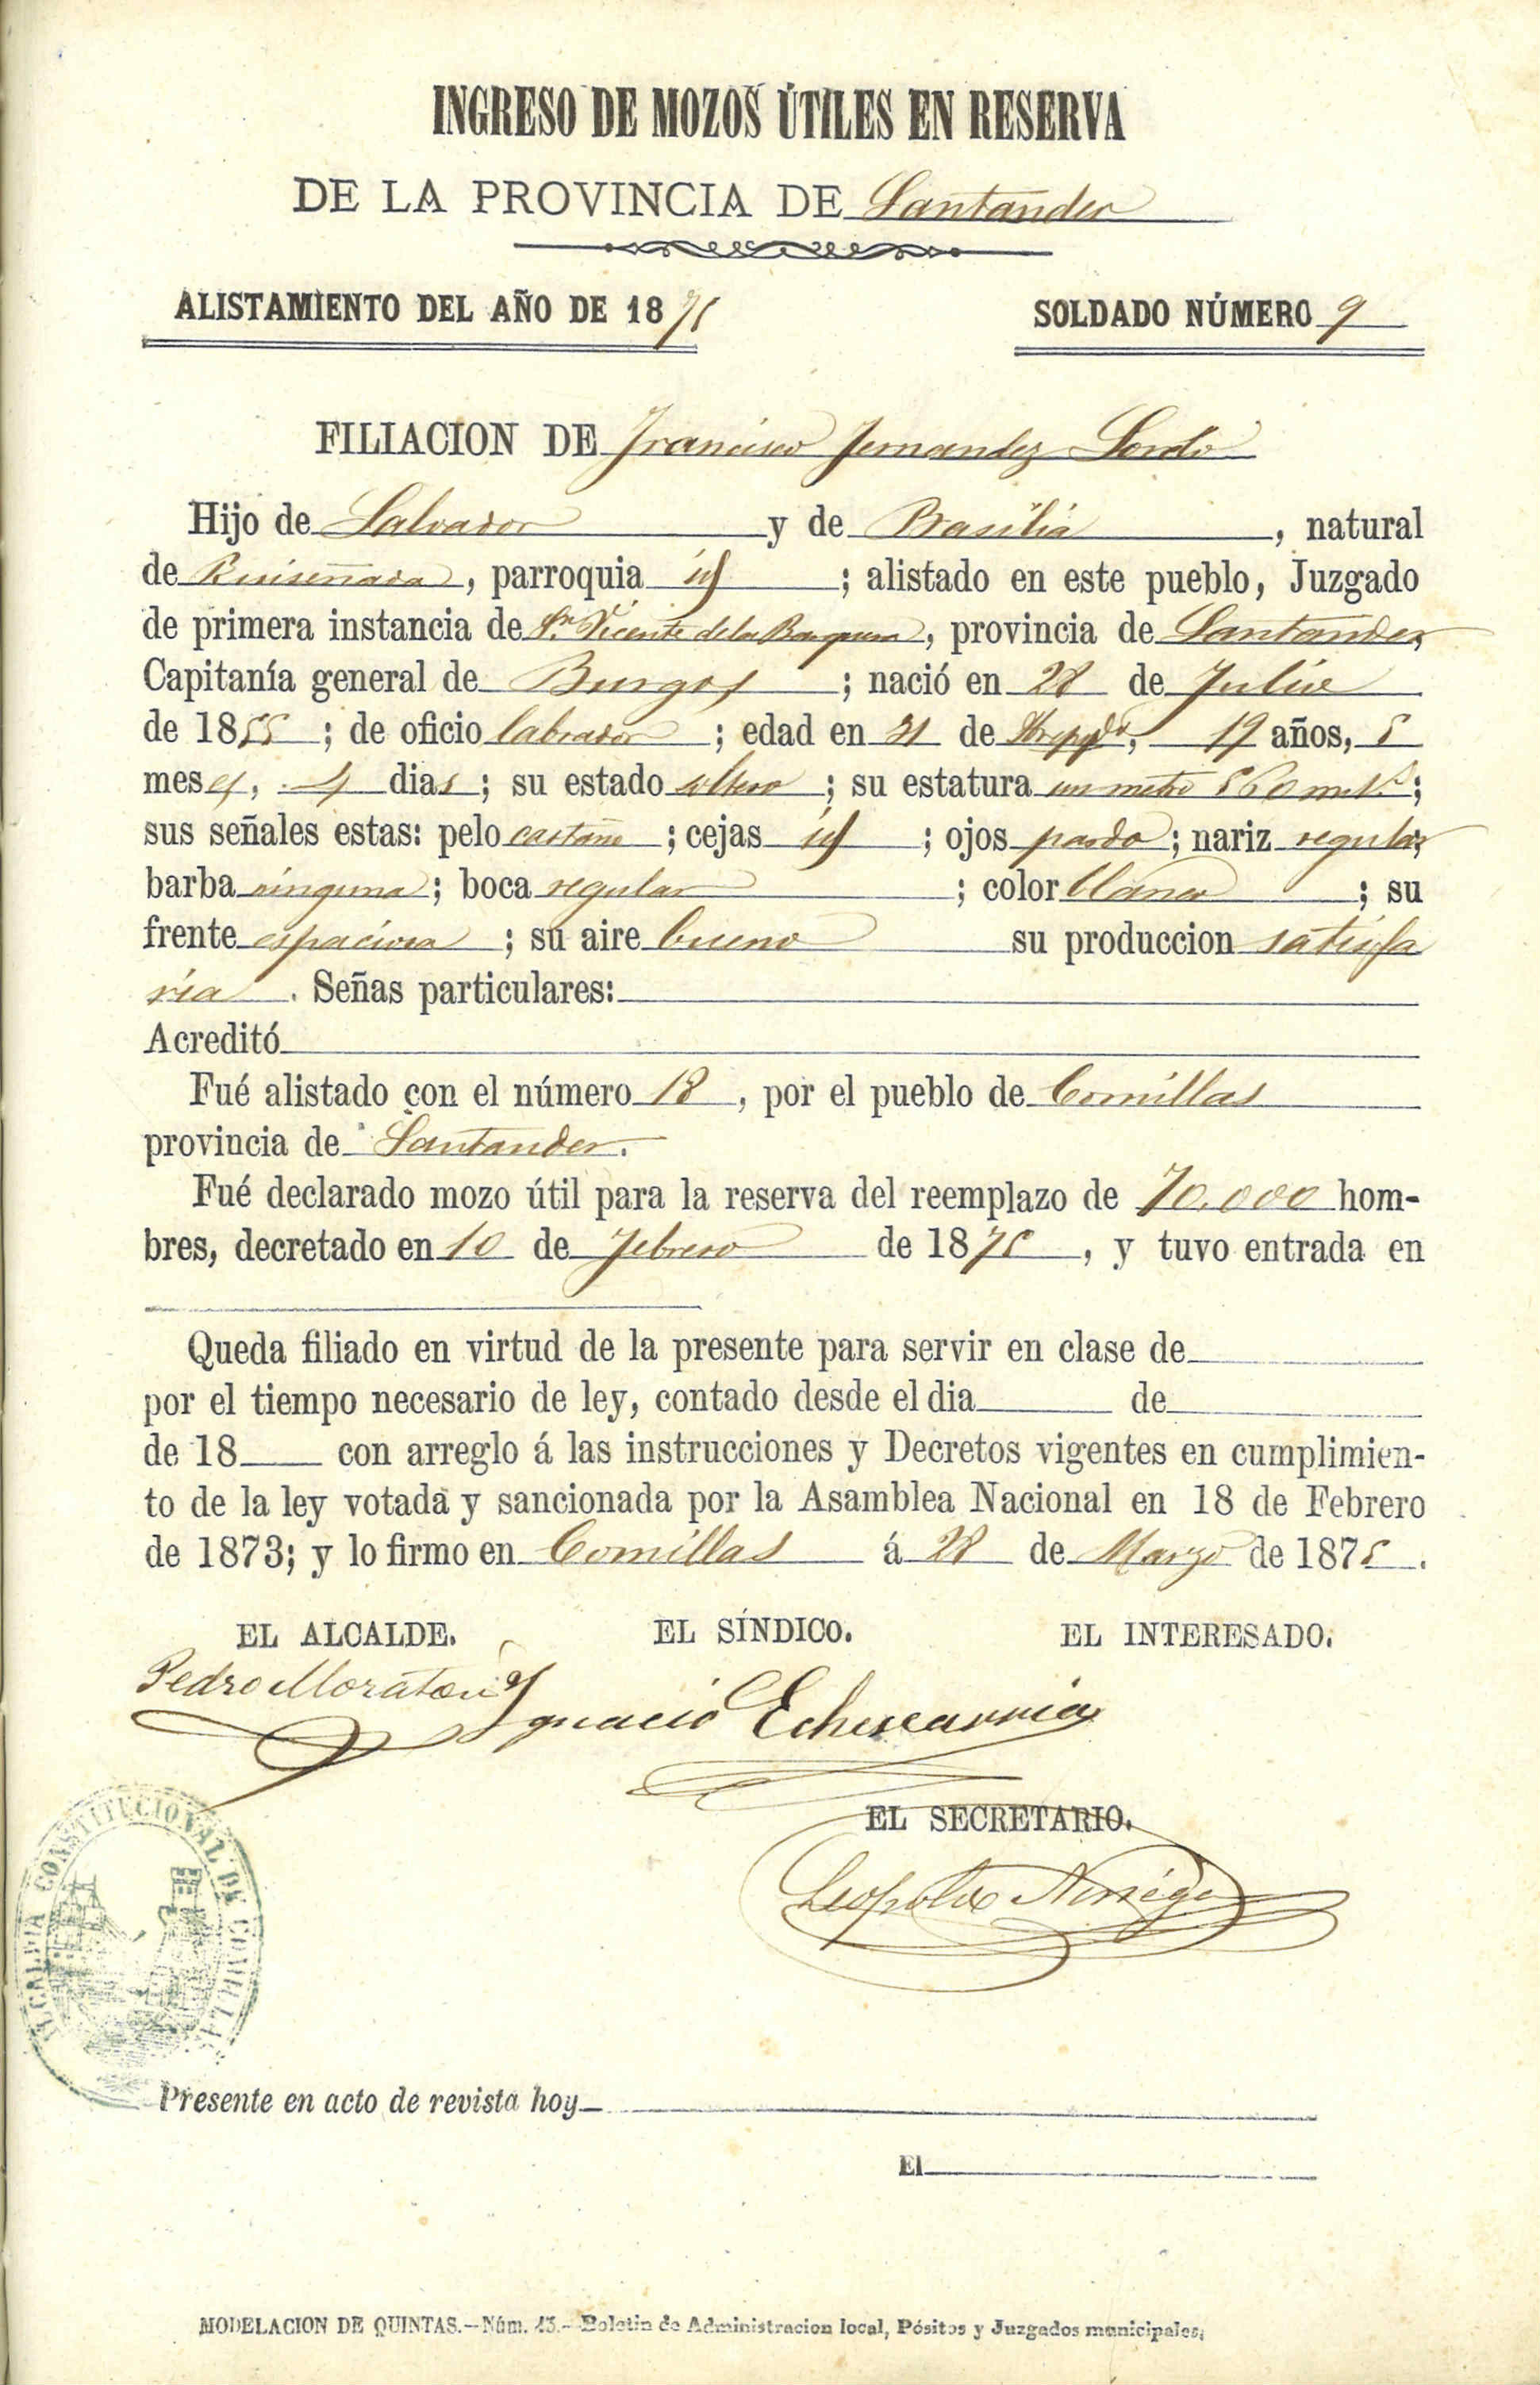 INGRESO DE MOZOS ÚTILES EN RESERVA
DE LA PROVINCIA DE Santander
ALISTAMIENTO DEL AÑO DE 1875
SOLDADO NÚMERO 9
FILIACION DE Francisco Fernandez Sordo
Hijo de Salvador y de Basilia, natural
de Ruiseñada, parroquia id; alistado en este pueblo, Juzgado
de primera instancia de Sn. Vicente de la Barquera, provincia de Santander,
Capitanía general de Burgos; nació en 28 de Julio
de 1855; de oficio labrador; edad en 31 de, 19 años, 5
meses, 4 dias; su estado soltero; su estatura un metro 560 mils.;
sus señales estas: pelo castaño; cejas id; ojos pardo; nariz regular,
barba ninguna; boca regular; color blanco; su
frente espaciosa; su aire bueno su produccion satisfa
ria. Señas particulares:
Acreditó
Fué alistado con el número 18, por el pueblo de Comillas
provincia de Santander.
Fué declarado mozo útil para la reserva del reemplazo de 70.000 hom-
bres, decretado en 10 de Febrero de 1875, y tuvo entrada en
Queda filiado en virtud de la presente para servir en clase de
por el tiempo necesario de ley, contado desde el dia de
de 18 con arreglo á las instrucciones y Decretos vigentes en cumplimien-
to de la ley votada y sancionada por la Asamblea Nacional en 18 de Febrero
de 1873; y lo firmo en Comillas á 28 de Marzo de 1875.
EL ALCALDE. EL SÍNDICO. EL INTERESADO.
Pedro Ignacio Echevarria
EL SECRETARIO.
Leopoldo Noriega
ALCALDIA CONSTITUCIONAL DE COMILLAS
Presente en acto de revista hoy
El
MODELACION DE QUINTAS.—Núm. 13.—Boletin de Administracion local, Pósitos y Juzgados municipales.